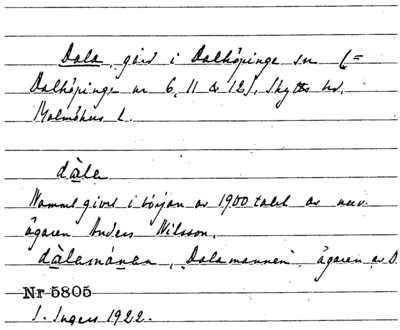 Dala, gård i Dalköpinge sn (=
Dalköpinge nr 6, 11 & 12), Skytts hd,
Malmöhus l.
dàla
Namnet givet i början av 1900 talet av nuv.
ägaren Anders Nilsson.
dàlamánen, "Dalamannen", ägaren av D.
Nr 5805
I. Ingers 1922.